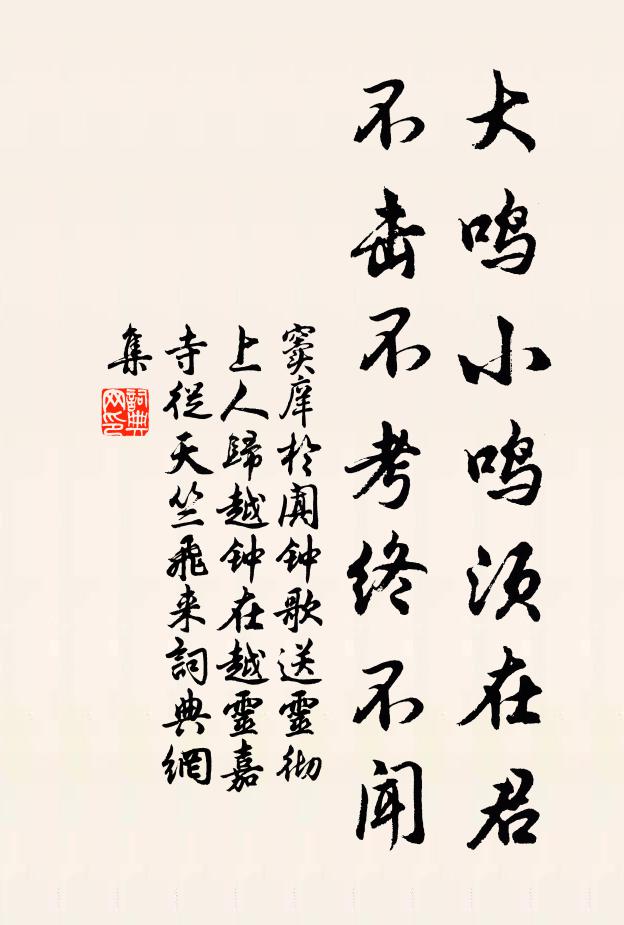 大鸣小鸣须在君
不击不考终不闻
窦庠於阗钟歌送靈彻
上人歸越钟在越靈嘉
寺從天竺飛来詞典網
集
詞典网印